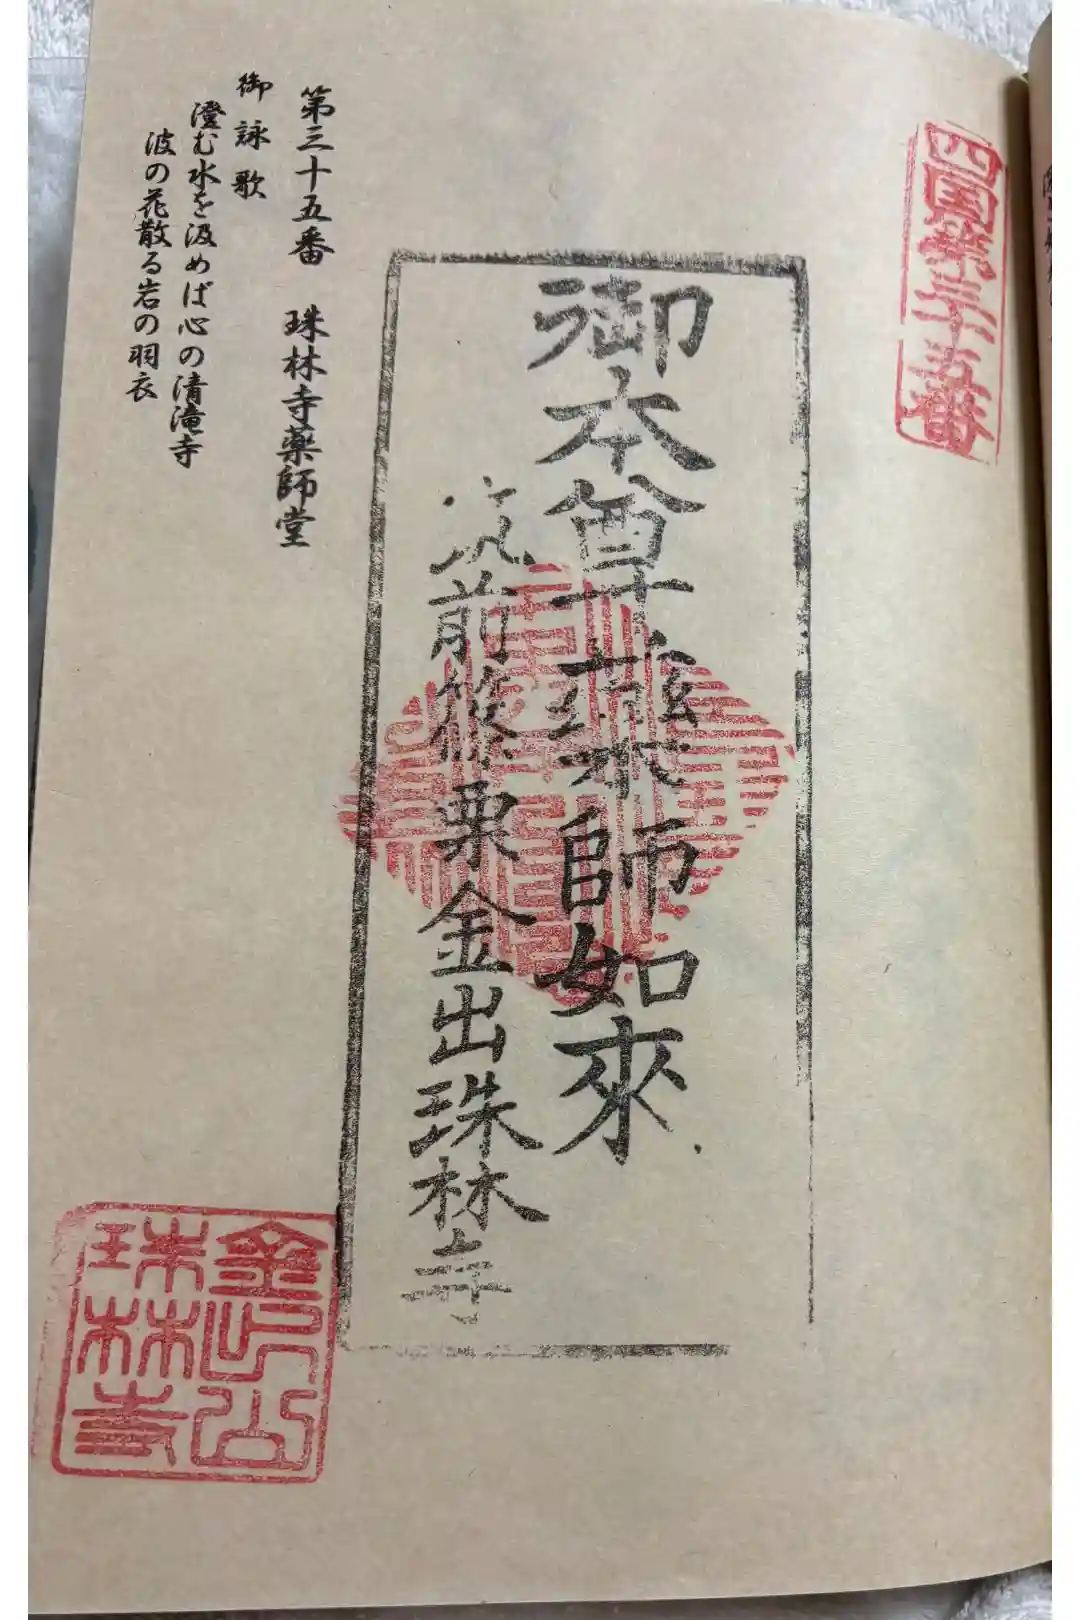 四国第三十五番
御本尊薬師如來
筑前篠栗金出珠林寺
第三十五番 珠林寺薬師堂
御詠歌
澄む水を汲めば心の清滝寺
波の花散る岩の羽衣
珠林寺